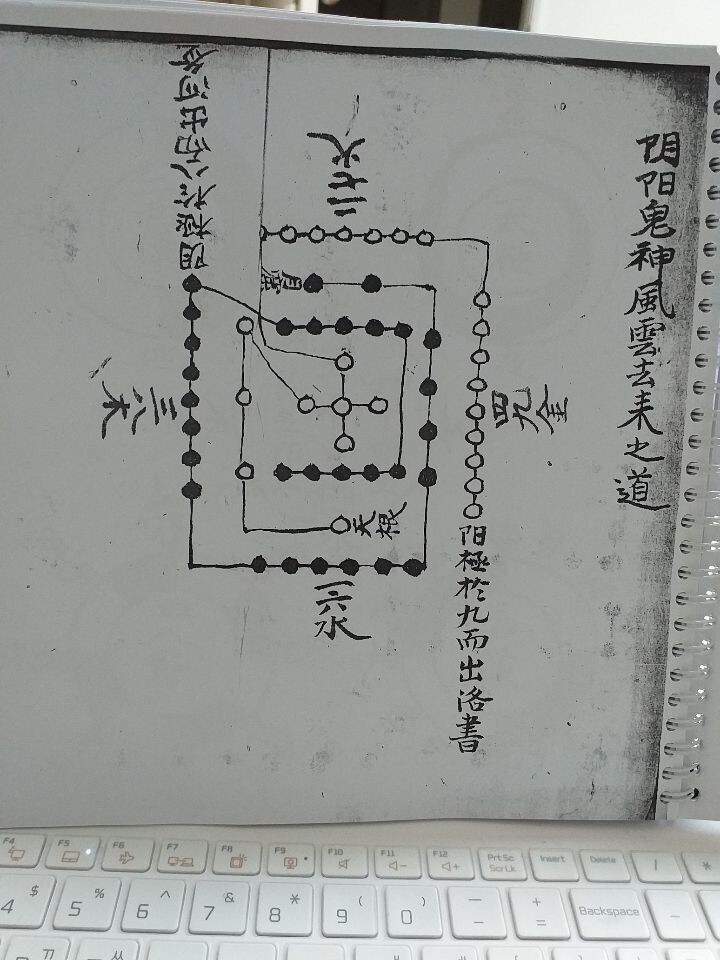 阴阳鬼神風雲去来之道
阴極於八而出河
二七火
月窟
四九金
三八木
天根
一六水
阳極於九而出洛書
F4 F5 F6 F7 F8 F9 F10 F11 F12 PrtSc ScrLk Insert Delete / *
4 $ 5 % 6 ^ 7 & 8 * 9 ( 0 ) - _ = + Backspace -
ㄲ ㅆ